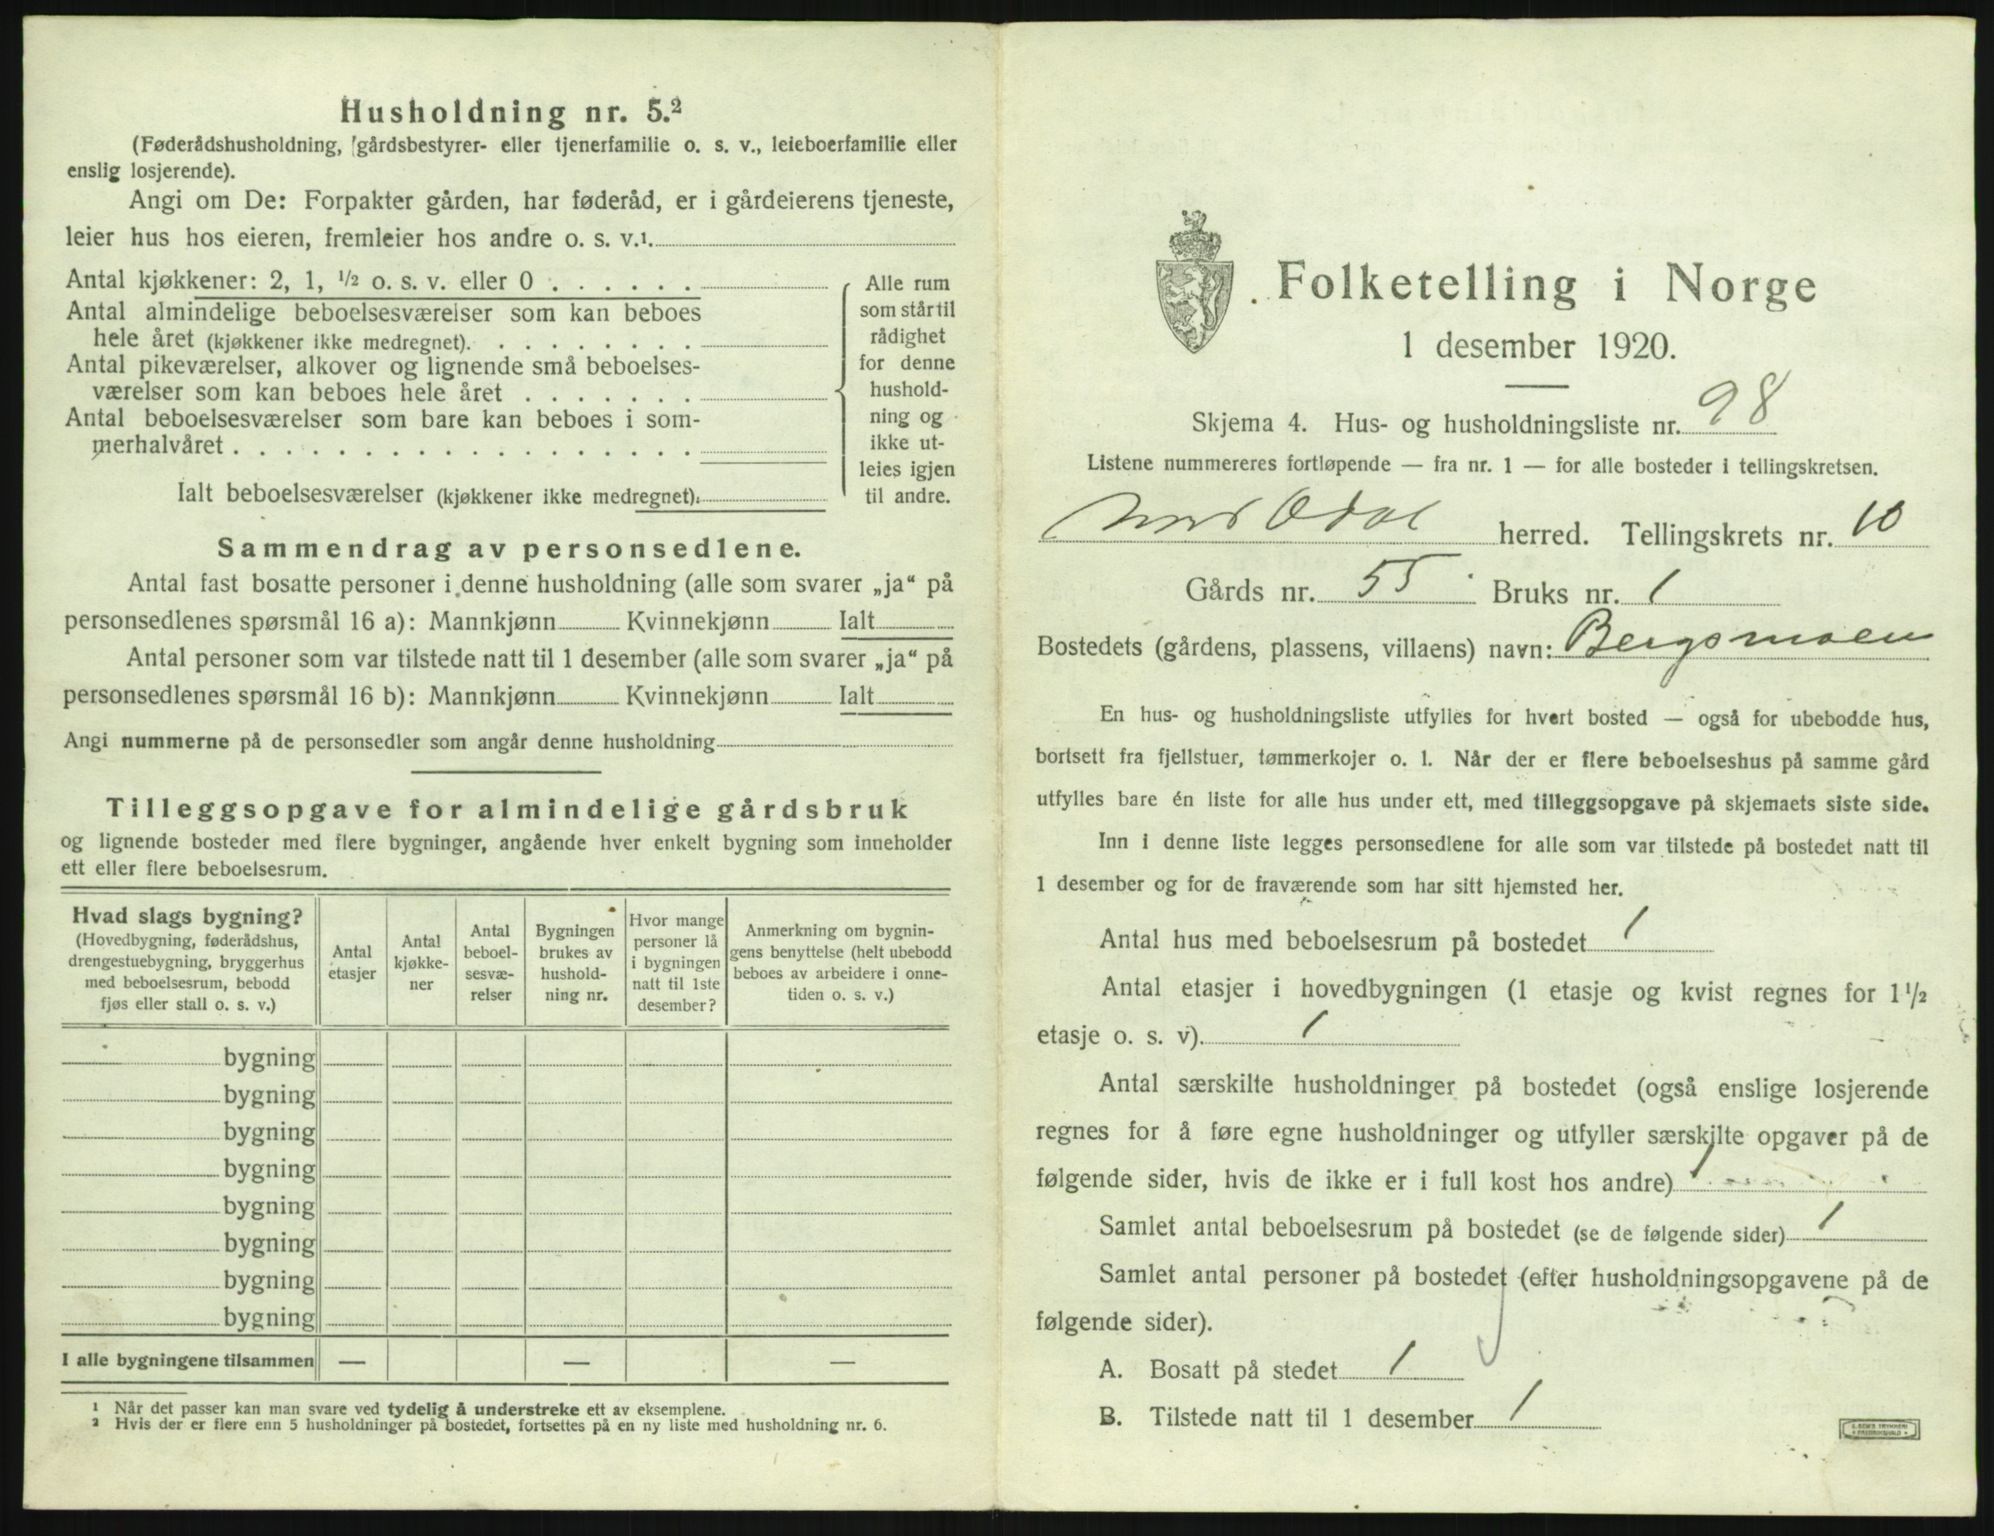 Husholdning nr. 5.²
(Føderådshusholdning, gårdsbestyrer- eller tjenerfamilie o. s. v., leieboerfamilie eller
enslig losjerende).
Angi om De: Forpakter gården, har føderåd, er i gårdeierens tjeneste,
leier hus hos eieren, fremleier hos andre o. s. v.¹.
Antal kjøkkener: 2, 1, ½ o. s. v. eller 0 . . . . . .
Antal almindelige beboelsesværelser som kan beboes
hele året (kjøkkener ikke medregnet). . . . . . . . .
Antal pikeværelser, alkover og lignende små beboelses-
værelser som kan beboes hele året . . . . . . .
Antal beboelsesværelser som bare kan beboes i som-
merhalvåret . . . . . . . . . . . . . . . . . .
Ialt beboelsesværelser (kjøkkener ikke medregnet).
Alle rum
som står til
rådighet
for denne
hushold-
ning og
ikke ut-
leies igjen
til andre.
Sammendrag av personsedlene.
Antal fast bosatte personer i denne husholdning (alle som svarer „ja“ på
personsedlenes spørsmål 16 a): Mannkjønn Kvinnekjønn Ialt
Antal personer som var tilstede natt til 1 desember (alle som svarer „ja“ på
personsedlenes spørsmål 16 b): Mannkjønn Kvinnekjønn Ialt
Angi nummerne på de personsedler som angår denne husholdning
Tilleggsopgave for almindelige gårdsbruk
og lignende bosteder med flere bygninger, angående hver enkelt bygning som inneholder
ett eller flere beboelsesrum.
Hvad slags bygning?
(Hovedbygning, føderådshus,
drengestuebygning, bryggerhus
med beboelsesrum, bebodd
fjøs eller stall o. s. v.)
Antal
etasjer
Antal
kjøkke-
ner
Antal
beboel-
sesvæ-
relser
Bygningen
brukes av
hushold-
ning nr.
Hvor mange
personer lå
i bygningen
natt til 1ste
desember?
Anmerkning om bygnin-
gens benyttelse (helt ubebodd
beboes av arbeidere i onne-
tiden o. s. v.)
bygning
bygning
bygning
bygning
bygning
bygning
bygning
bygning
I alle bygningene tilsammen — — —
¹ Når det passer kan man svare ved tydelig å understreke ett av eksemplene.
² Hvis der er flere enn 5 husholdninger på bostedet, fortsettes på en ny liste med husholdning nr. 6.
Folketelling i Norge
1 desember 1920.
Skjema 4. Hus- og husholdningsliste nr. 98
Listene nummereres fortløpende — fra nr. 1 — for alle bosteder i tellingskretsen.
Nord Odal herred. Tellingskrets nr. 10
Gårds nr. 55 Bruks nr. 1
Bostedets (gårdens, plassens, villaens) navn: Bergsmoen
En hus- og husholdningsliste utfylles for hvert bosted — også for ubebodde hus,
bortsett fra fjellstuer, tømmerkojer o. l. Når der er flere beboelseshus på samme gård
utfylles bare én liste for alle hus under ett, med tilleggsopgave på skjemaets siste side.
Inn i denne liste legges personsedlene for alle som var tilstede på bostedet natt til
1 desember og for de fraværende som har sitt hjemsted her.
Antal hus med beboelsesrum på bostedet 1
Antal etasjer i hovedbygningen (1 etasje og kvist regnes for 1½
etasje o. s. v). 1
Antal særskilte husholdninger på bostedet (også enslige losjerende
regnes for å føre egne husholdninger og utfyller særskilte opgaver på de
følgende sider, hvis de ikke er i full kost hos andre) 1
Samlet antal beboelsesrum på bostedet (se de følgende sider) 1
Samlet antal personer på bostedet (efter husholdningsopgavene på de
følgende sider).
A. Bosatt på stedet 1
B. Tilstede natt til 1 desember 1